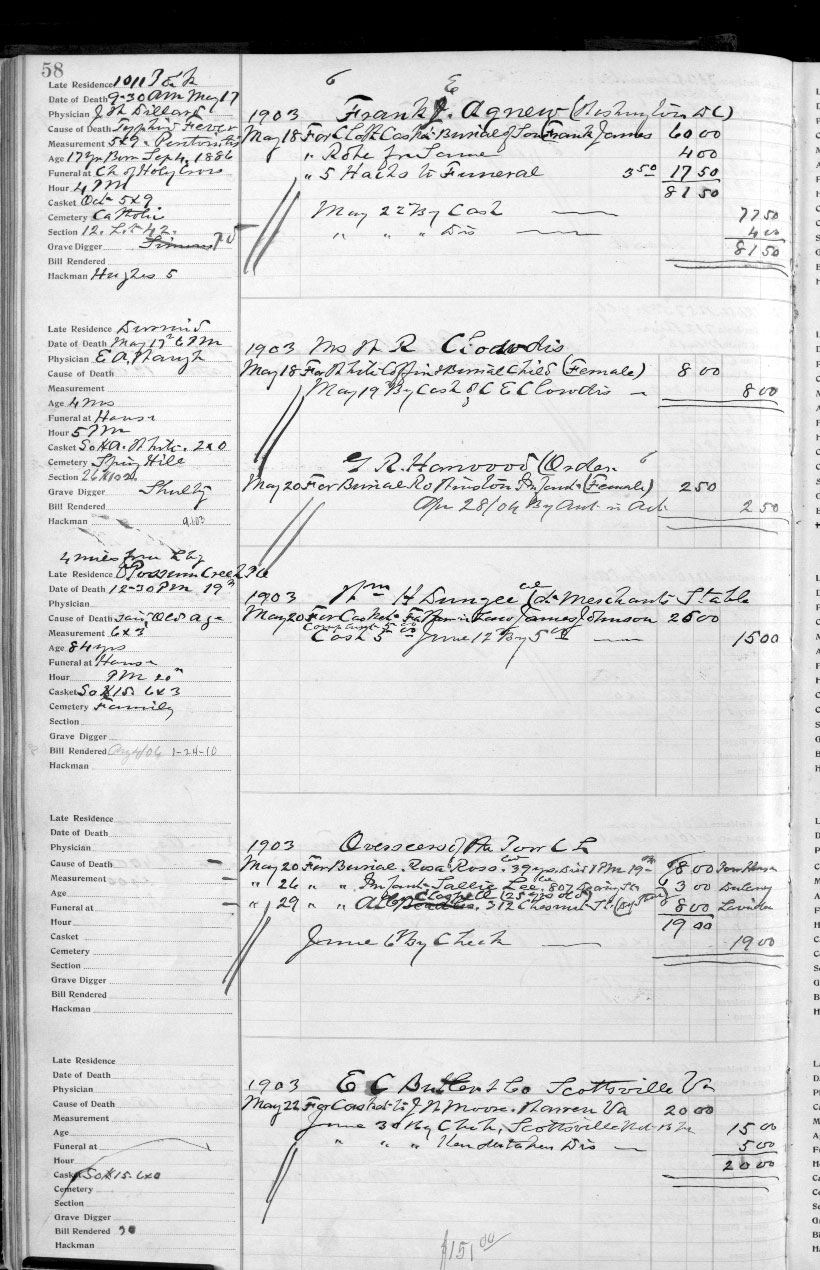 58
Late Residence 1011 Park
Date of Death 9-30 AM May 17
Physician J W Dillard
Cause of Death Typhoid Fever
Measurement 5x9
Age 17 yrs Born Sep 4, 1886
Funeral at Ch of Holy Cross
Hour 4 PM
Casket Oct 5x9
Cemetery Catholic
Section 12. Lot 42.
Grave Digger
Bill Rendered
Hackman Hughes 5
1903 Frank E. Agnew (Washington DC)
May 18 For Cloth Casket & Burial of Son Frank James 60 00
" Robe for Same 4 00
" 5 Hacks to Funeral 3 50 17 50
81 50
May 22 By Cash 77 50
" " " Dis 4 00
81 50
Late Residence
Date of Death May 17 6 PM
Physician E A
Cause of Death
Measurement
Age 4 Mos
Funeral at House
Hour 5 PM
Casket White. 2x0
Cemetery Spring Hill
Section
Grave Digger Shultz
Bill Rendered
Hackman
1903 R Clowdis
May 18 For White Coffin & Burial Child (Female) 8 00
May 19 By Cash of C E Clowdis 8 00
G R. Harwood (Order.
May 20 For Burial Infant (Female) 2 50
Apr 28/04 By Amt in 2 50
4 miles from Lbg
Late Residence Opossum Creek
Date of Death 12-30 PM 19th
Physician
Cause of Death Old age
Measurement 6x3
Age 84 yrs
Funeral at House
Hour PM 20"
Casket So K15. 6x3
Cemetery Family
Section
Grave Digger
Bill Rendered 1-24-10
Hackman
1903 Wm H Dungee col (At Merchants Stable
May 20 For Casket Father in Law James Johnson 25 00
Cash 5 00 June 12 By 5 00 15 00
Late Residence
Date of Death
Physician
Cause of Death
Measurement
Age
Funeral at
Hour
Casket
Cemetery
Section
Grave Digger
Bill Rendered
Hackman
1903 Overseers of the Poor C L
May 20 For Burial. Rosa Ross. Col 39 yrs. Died 1 PM 19th 8 00
" 26 " " Infant Sallie Lee. 807 3 00
" 29 " " (25 yrs old) 312 Chesnut St. 8 00
19 00
June 6 By Check 19 00
Late Residence
Date of Death
Physician
Cause of Death
Measurement
Age
Funeral at
Hour
Casket So K15. 6x0
Cemetery
Section
Grave Digger
Bill Rendered 30
Hackman
1903 E C Butler & Co Scottsville Va
May 22 For Casket to J W Moore. Warren Va 20 00
June 3 By Check, Scottsville 15 00
" " " Undertaker Dis 5 00
20 00
$151 00